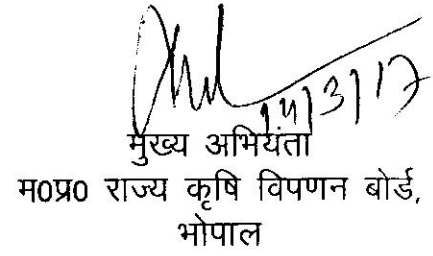 14/3/17
मुख्य अभियंता
म0प्र0 राज्य कृषि विपणन बोर्ड,
भोपाल